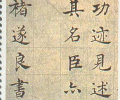 功迹見述
其名臣亦
褚遂良書